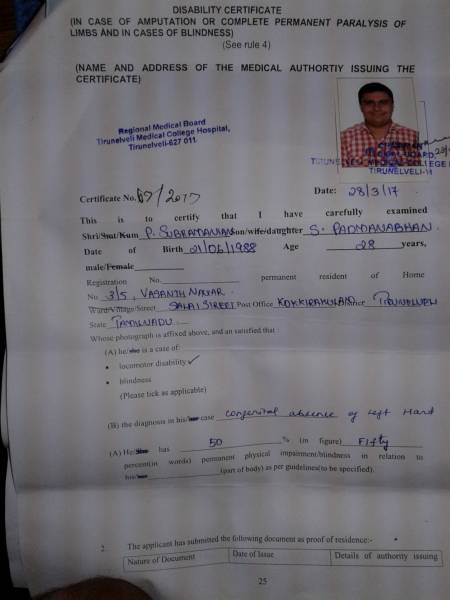 DISABILITY CERTIFICATE
(IN CASE OF AMPUTATION OR COMPLETE PERMANENT PARALYSIS OF
LIMBS AND IN CASES OF BLINDNESS)
(See rule 4)
(NAME AND ADDRESS OF THE MEDICAL AUTHORTIY ISSUING THE
CERTIFICATE)
Regional Medical Board
Tirunelveli Medical College Hospital,
Tirunelveli-627 011.
MEDICAL BOARD,
TIRUNELVELI MEDICAL COLLEGE
TIRUNELVELI-11
Certificate No. 67/2017 Date: 28/3/17
This is to certify that I have carefully examined
Shri/Smt/Kum P. SUBRAMANIAN son/wife/daughter S. PADMANABHAN
Date of Birth 21/06/1988 Age 28 years,
male/Female
Registration No. permanent resident of Home
No 3/5, VASANTH NAGAR
Ward/Village/Street SALAI STREET Post Office KOKKIRAKULAM District TIRUNELVELI
State TAMILNADU
Whose photograph is affixed above, and an satisfied that :
(A) he/she is a case of:
• locomotor disability ✓
• blindness
(Please tick as applicable)
(B) the diagnosis in his/her case congenital absence of left Hand
(A) He/She has 50 % (in figure) Fifty
percent(in words) permanent physical impairment/blindness in relation to
his/her (part of body) as per guidelines(to be specified).
2. The applicant has submitted the following document as proof of residence:-
Nature of Document Date of Issue Details of authority issuing
25